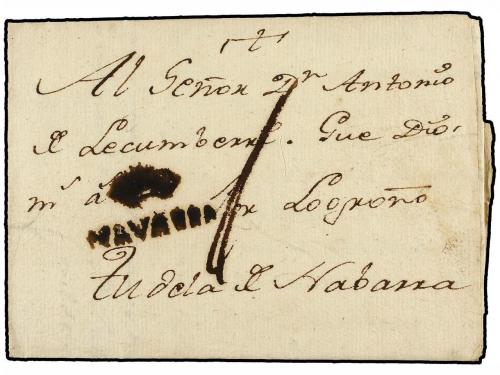 +
Al Señor Dn Antonio
de Lecumberri. Gue Dio.
ms a. por Logroño
NAVARRA
Tudela de Nabarra